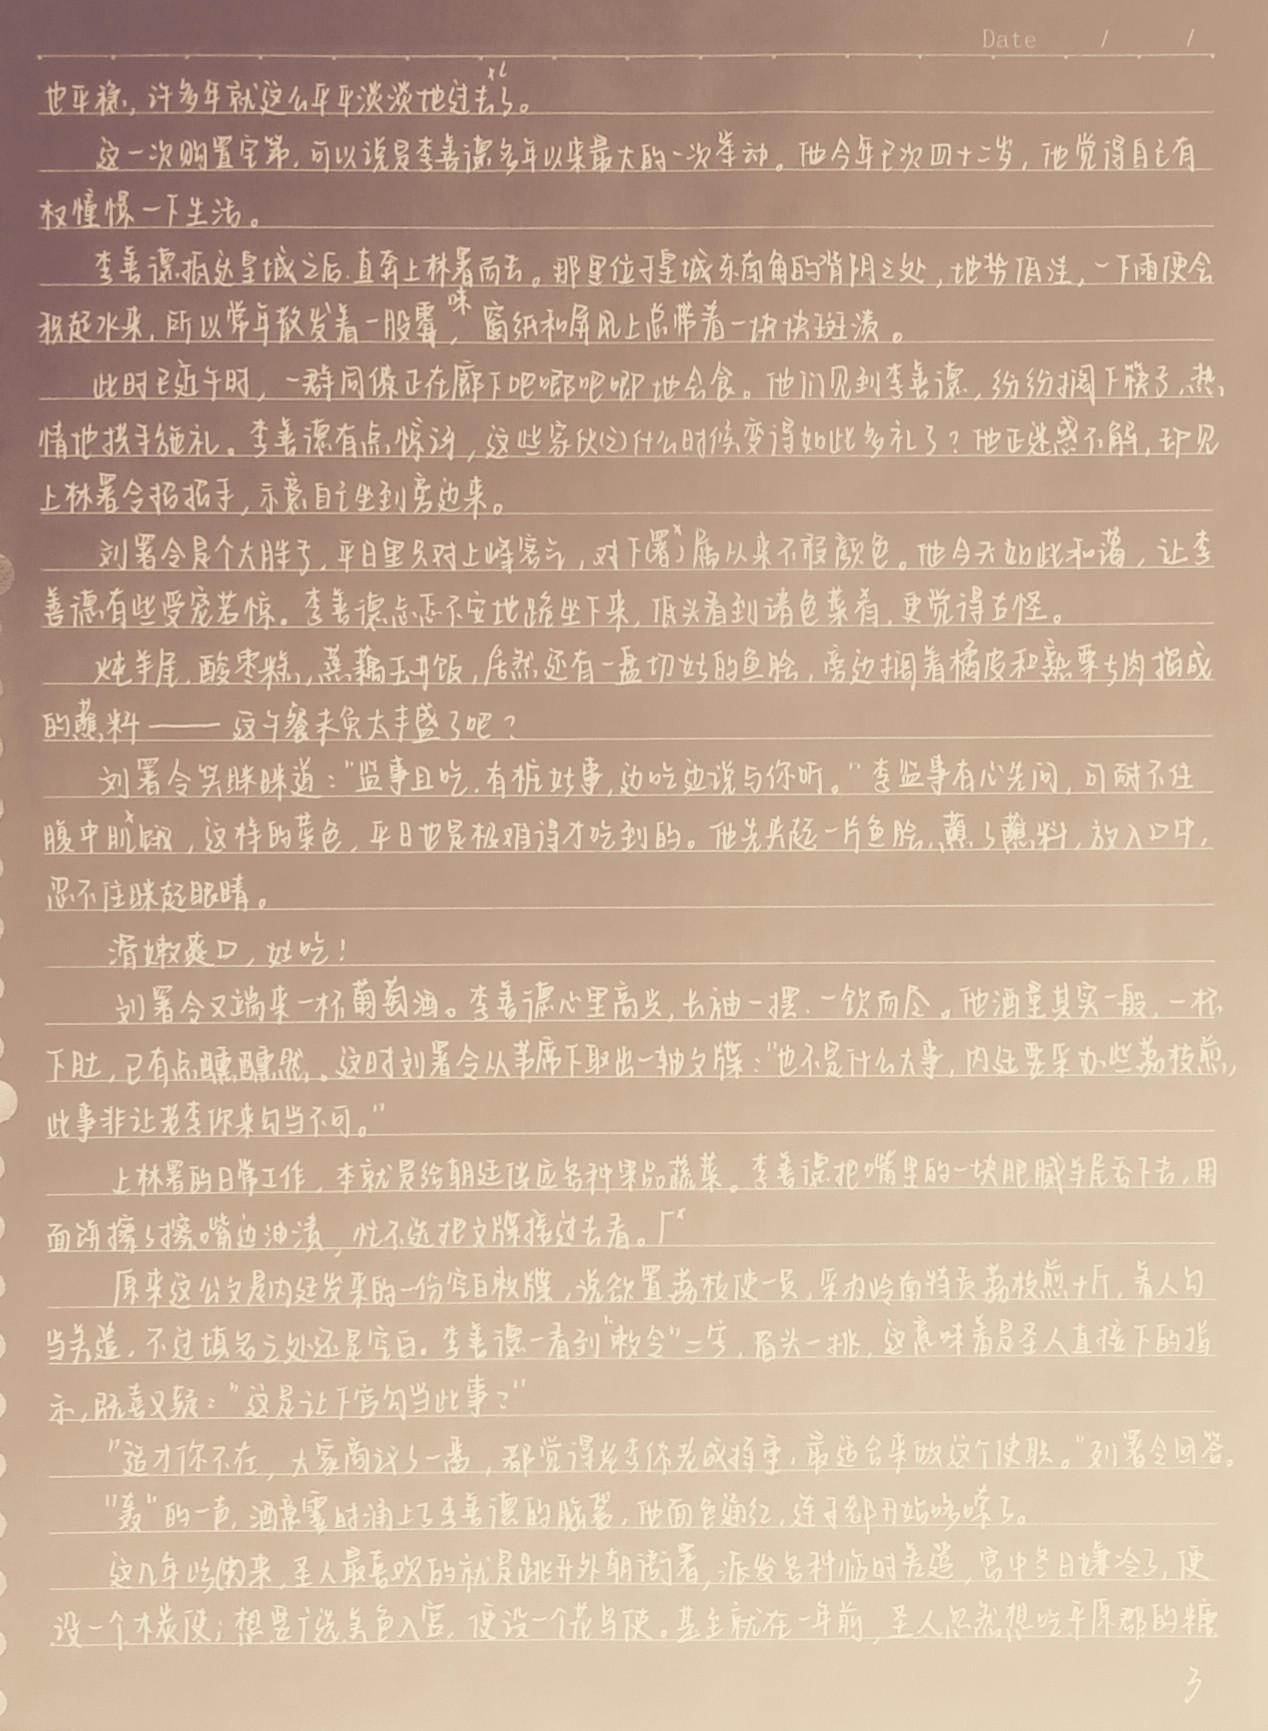 Date / /
也平稳，许多年就这么平平淡淡地过去了。
这一次购置宅第，可以说是李善德多年以来最大的一次举动。他今年已次四十二岁，他觉得自己有
权憧憬一下生活。
李善德抵达皇城之后，直奔上林署而去。那里位于皇城东南角的背阴之处，地势低洼，一下雨便会
积起水来，所以常年散发着一股霉味，窗纸和屏风上总带着一块块斑渍。
此时已近午时，一群同僚正在廊下吧唧吧唧地会食。他们见到李善德，纷纷搁下筷子，热
情地拱手施礼。李善德有点惊讶，这些家伙什么时候变得如此多礼了？他正迷惑不解，却见
上林署令招招手，示意自己坐到旁边来。
刘署令是个大胖子，平日里只对上峰客气，对下(署)属从来不假颜色。他今天如此和蔼，让李
善德有些受宠若惊。李善德忐忑不安地跪坐下来，低头看到诸色菜肴，更觉得古怪。
炖羊尾，酸枣糕，蒸藕玉井饭，居然还有一盘切好的鱼脍，旁边搁着橘皮和熟栗子肉捣成
的蘸料——这午餐未免太丰盛了吧？
刘署令笑眯眯道："监事且吃，有桩好事，边吃边说与你听。"李监事有心先问，可耐不住
腹中肌饿，这样的菜色，平日也是极难得才吃到的。他先夹起一片鱼脍，蘸了蘸料，放入口中，
忍不住眯起眼睛。
滑嫩爽口，好吃！
刘署令又端来一杯葡萄酒。李善德心里高兴，长袖一摆，一饮而尽。他酒量其实一般，一杯
下肚，已有点醺醺然。这时刘署令从苇席下取出一轴文牒："也不是什么大事，内廷要采办些荔枝煎，
此事非让老李你来勾当不可。"
上林署的日常工作，本就是给朝廷供应各种果品蔬菜。李善德把嘴里的一块肥腻羊尾吞下去，用
面饼擦了擦嘴边油渍，忙不迭把文牒接过去看。「
原来这公文是内廷发来的一份空白敕牒，说欲置荔枝使一员，采办岭南特贡荔枝煎十斤，着人勾
当差遣，不过填名之处还是空白。李善德一看到"敕令"二字，眉头一挑，这意味着是圣人直接下的指
示，既喜又疑："这是让下官勾当此事？"
"适才你不在，大家商议了一番，都觉得老李你老成持重，最适合来做这个使职。"刘署令回答。
"轰"的一声，酒意霎时涌上了李善德的脑袋，他面色通红，连手都开始哆嗦了。
这几年以来，圣人最喜欢的就是跳开外朝衙署，派发各种临时差遣，宫中冬日嫌冷了，便
设一个木炭使；想要广选美色入宫，便设一个花鸟使。甚至就在一年前，圣人忽然想吃平原郡的糖
3